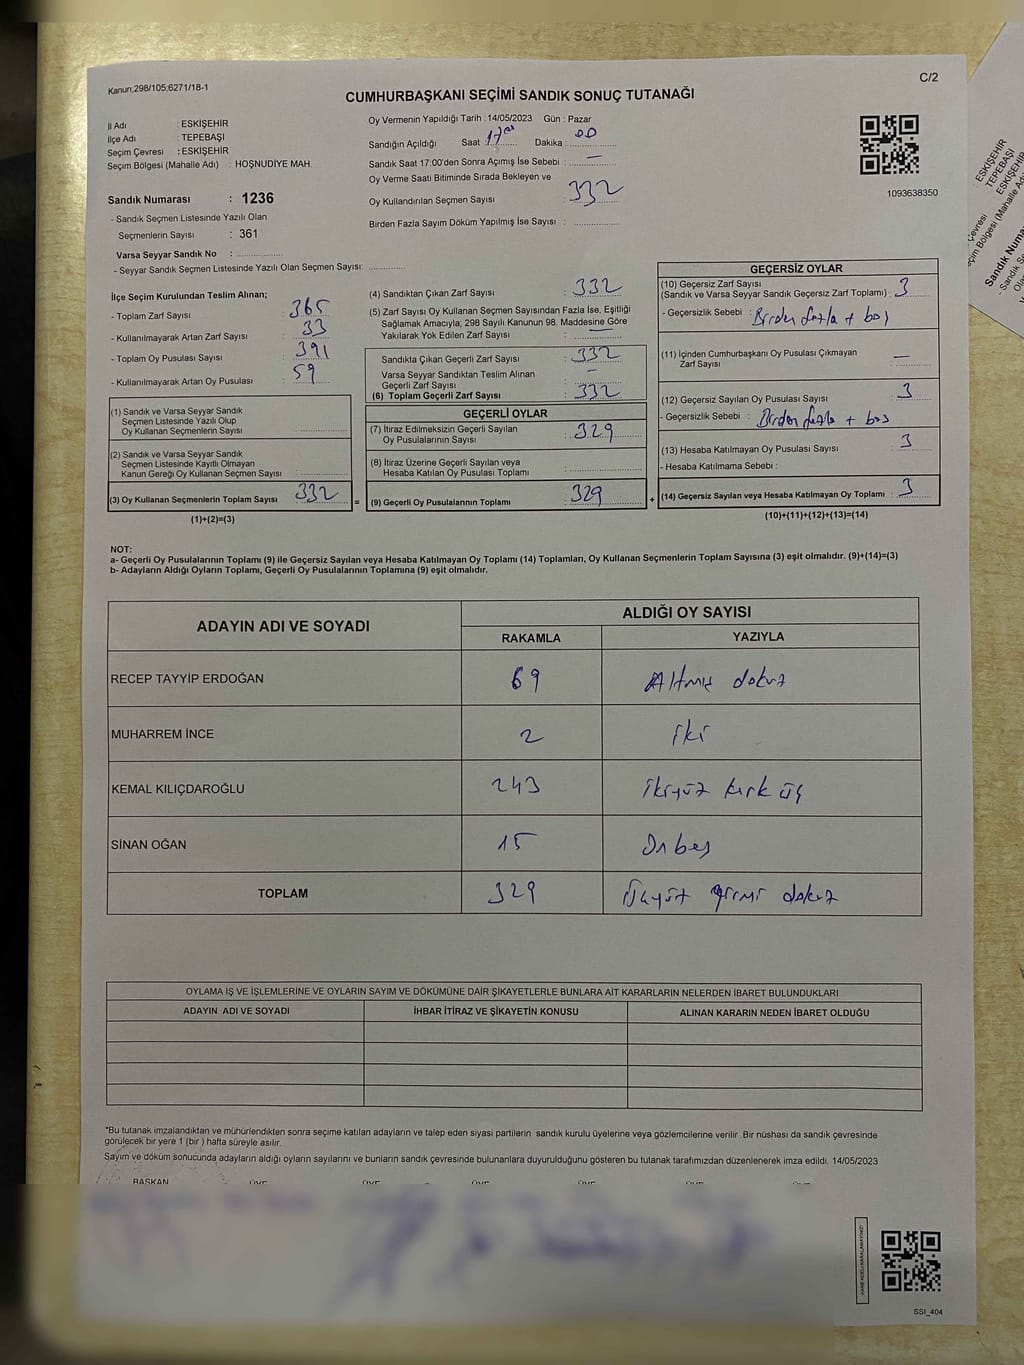 Kanun:298/105;6271/18-1
C/2
CUMHURBAŞKANI SEÇİMİ SANDIK SONUÇ TUTANAĞI
İl Adı : ESKİŞEHİR
İlçe Adı : TEPEBAŞI
Seçim Çevresi : ESKİŞEHİR
Seçim Bölgesi (Mahalle Adı) : HOŞNUDİYE MAH.
Oy Vermenin Yapıldığı Tarih : 14/05/2023 Gün : Pazar
Sandığın Açıldığı Saat : 17 00 Dakika : 00
Sandık Saat 17:00'den Sonra Açımış İse Sebebi : —
Oy Verme Saati Bitiminde Sırada Bekleyen ve
Oy Kullandırılan Seçmen Sayısı : 332
Birden Fazla Sayım Döküm Yapılmış İse Sayısı :
1093638350
Sandık Numarası : 1236
- Sandık Seçmen Listesinde Yazılı Olan
Seçmenlerin Sayısı : 361
Varsa Seyyar Sandık No :
- Seyyar Sandık Seçmen Listesinde Yazılı Olan Seçmen Sayısı:
İlçe Seçim Kurulundan Teslim Alınan;
- Toplam Zarf Sayısı : 365
- Kullanılmayarak Artan Zarf Sayısı : 33
- Toplam Oy Pusulası Sayısı : 391
- Kullanılmayarak Artan Oy Pusulası : 59
(1) Sandık ve Varsa Seyyar Sandık
Seçmen Listesinde Yazılı Olup
Oy Kullanan Seçmenlerin Sayısı :
(2) Sandık ve Varsa Seyyar Sandık
Seçmen Listesinde Kayıtlı Olmayan
Kanun Gereği Oy Kullanan Seçmen Sayısı :
(3) Oy Kullanan Seçmenlerin Toplam Sayısı : 332
(1)+(2)=(3)
=
(4) Sandıktan Çıkan Zarf Sayısı : 332
(5) Zarf Sayısı Oy Kullanan Seçmen Sayısından Fazla İse, Eşitliği
Sağlamak Amacıyla; 298 Sayılı Kanunun 98. Maddesine Göre
Yakılarak Yok Edilen Zarf Sayısı : —
Sandıkta Çıkan Geçerli Zarf Sayısı : 332
Varsa Seyyar Sandıktan Teslim Alınan
Geçerli Zarf Sayısı : —
(6) Toplam Geçerli Zarf Sayısı : 332
GEÇERLİ OYLAR
(7) İtiraz Edilmeksizin Geçerli Sayılan
Oy Pusulalarının Sayısı : 329
(8) İtiraz Üzerine Geçerli Sayılan veya
Hesaba Katılan Oy Pusulası Toplamı :
(9) Geçerli Oy Pusulalarının Toplamı : 329
+
GEÇERSİZ OYLAR
(10) Geçersiz Zarf Sayısı
(Sandık ve Varsa Seyyar Sandık Geçersiz Zarf Toplamı) : 3
- Geçersizlik Sebebi : Birden fazla + boş
(11) İçinden Cumhurbaşkanı Oy Pusulası Çıkmayan
Zarf Sayısı : —
(12) Geçersiz Sayılan Oy Pusulası Sayısı : 3
- Geçersizlik Sebebi : Birden fazla + boş
(13) Hesaba Katılmayan Oy Pusulası Sayısı : 3
- Hesaba Katılmama Sebebi :
(14) Geçersiz Sayılan veya Hesaba Katılmayan Oy Toplamı : 3
(10)+(11)+(12)+(13)=(14)
NOT:
a- Geçerli Oy Pusulalarının Toplamı (9) ile Geçersiz Sayılan veya Hesaba Katılmayan Oy Toplamı (14) Toplamları, Oy Kullanan Seçmenlerin Toplam Sayısına (3) eşit olmalıdır. (9)+(14)=(3)
b- Adayların Aldığı Oyların Toplamı, Geçerli Oy Pusulalarının Toplamına (9) eşit olmalıdır.
ADAYIN ADI VE SOYADI
ALDIĞI OY SAYISI
RAKAMLA YAZIYLA
RECEP TAYYİP ERDOĞAN 69 Altmış dokuz
MUHARREM İNCE 2 iki
KEMAL KILIÇDAROĞLU 243 ikiyüz kırk üç
SİNAN OĞAN 15 Onbeş
TOPLAM 329 Üçyüz yirmi dokuz
OYLAMA İŞ VE İŞLEMLERİNE VE OYLARIN SAYIM VE DÖKÜMÜNE DAİR ŞİKAYETLERLE BUNLARA AİT KARARLARIN NELERDEN İBARET BULUNDUKLARI
ADAYIN ADI VE SOYADI İHBAR İTİRAZ VE ŞİKAYETİN KONUSU ALINAN KARARIN NEDEN İBARET OLDUĞU
*Bu tutanak imzalandıktan ve mühürlendikten sonra seçime katılan adayların ve talep eden siyasi partilerin sandık kurulu üyelerine veya gözlemcilerine verilir .Bir nüshası da sandık çevresinde
görülecek bir yere 1 (bir ) hafta süreyle asılır.
Sayım ve döküm sonucunda adayların aldığı oyların sayılarını ve bunların sandık çevresinde bulunanlara duyurulduğunu gösteren bu tutanak tarafımızdan düzenlenerek imza edildi. 14/05/2023
BAŞKAN ÜYE ÜYE ÜYE ÜYE ÜYE ÜYE
SSI_404
ESKİŞEHİR
TEPEBAŞI
ESKİŞEHİR